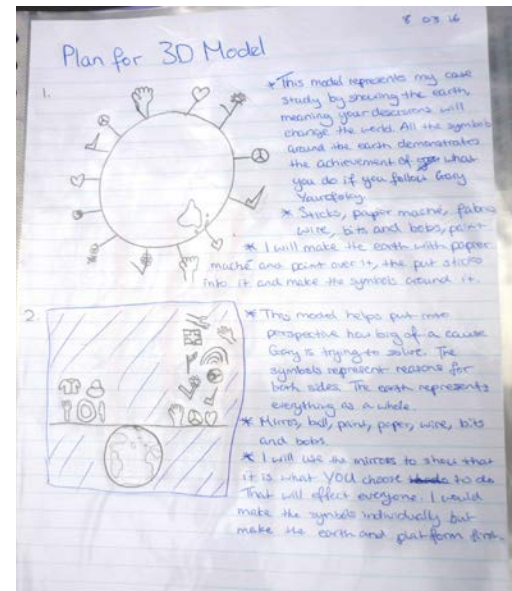 8 03 16
Plan for 3D Model
1.
* This model represents my case
study by showing the earth,
meaning your descisions will
change the world. All the symbols
around the earth demonstrates
the achievement of what
you do if you follow Gary
Yourofsky.
* Sticks, paper maché, fabric
wire, bits and bobs, paint
* I will make the earth with paper
maché and paint over it, the put sticks
into it and make the symbols around it.
2.
* This model helps put into
perspective how big of a cause
Gary is trying to solve. The
symbols represent reasons for
both sides. The earth represents
everything as a whole.
* Mirros, ball, paint, paper, wire, bits
and bobs.
* I will use the mirrors to show that
it is what YOU choose to do
That will effect everyone. I would
make the symbols individually but
make the earth and platform first.